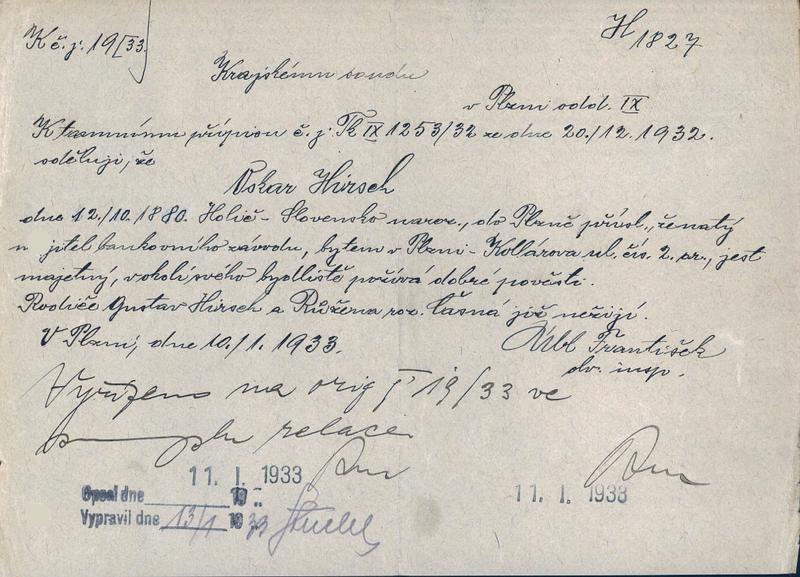 K č.j. 19/33.
H 1827
Krajskému soudu
v Plzni odd. IX
K tamnímu přípisu č.j. Tk IX 1253/32 ze dne 20./12. 1932.
sděluji, že
Oskar Hirsch
dne 12./10. 1880. Holič - Slovensko naroz., do Plzně přísl., ženatý
jitel bankovního závodu, bytem v Plzni - Kollárova ul. čís. 2. jest
majetný, v okolí svého bydliště požívá dobré pověsti.
Rodiče Gustav Hirsch a Růžena roz. již nežijí.
V Plzni, dne 10./1. 1933.
František
insp.
Vyřízeno na orig 19/33 ve
relace
11. I. 1933
11. I. 1933
Opsal dne 19
Vypravil dne 13/1 1933